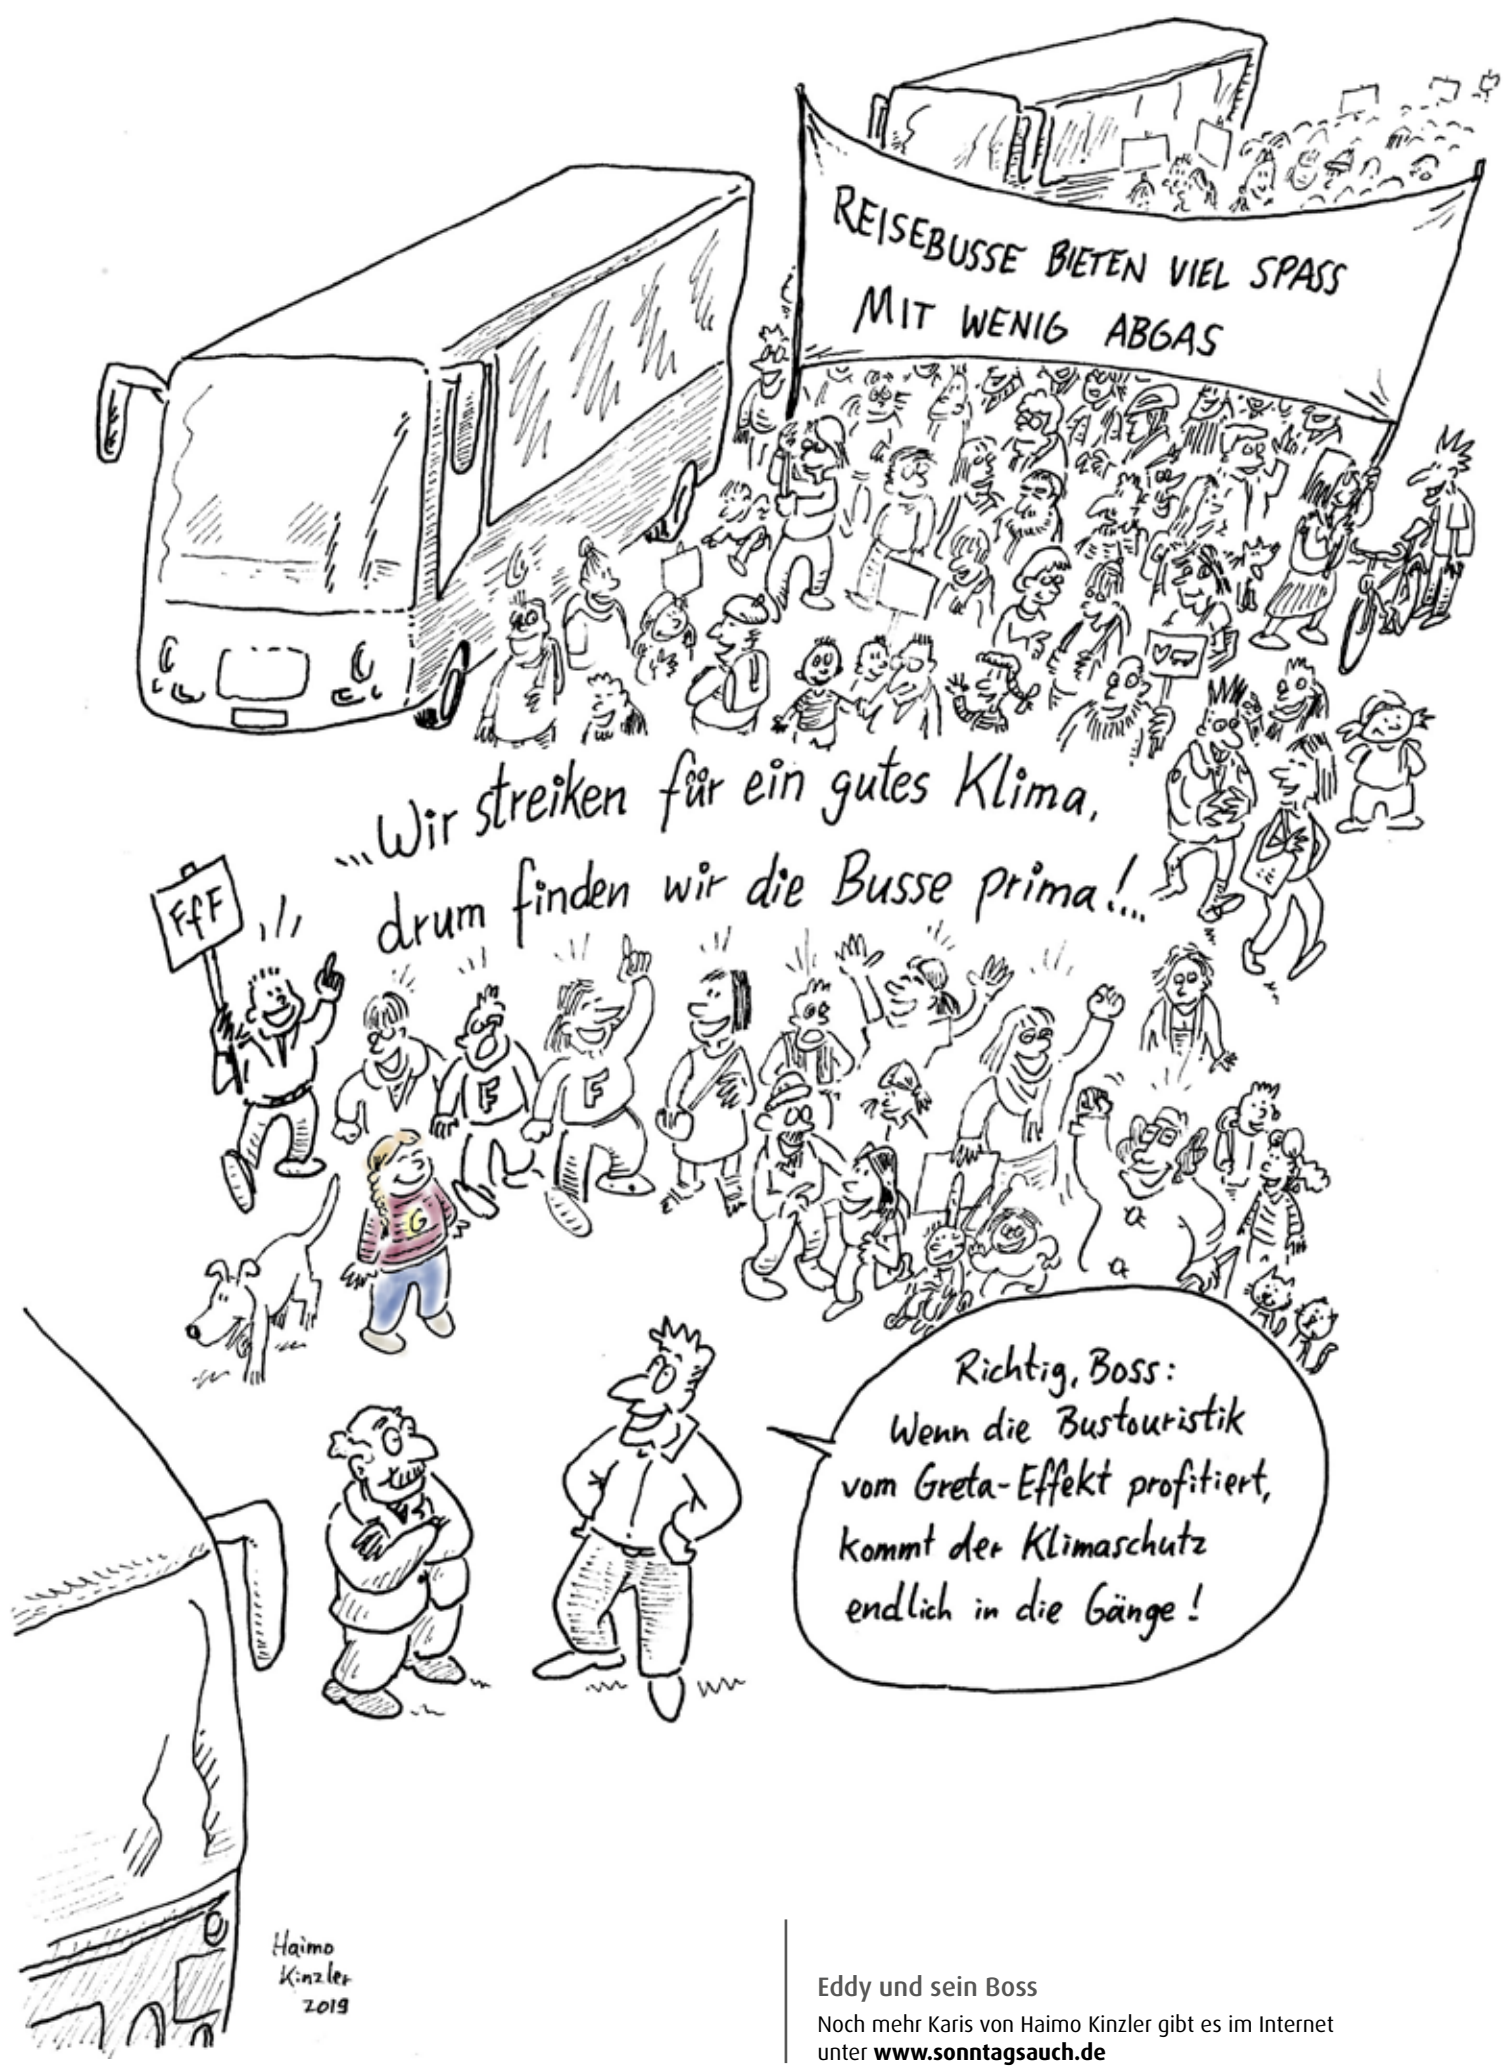 REISEBUSSE BIETEN VIEL SPASS
MIT WENIG ABGAS
...Wir streiken für ein gutes Klima,
drum finden wir die Busse prima!...
FfF
F
F
G
Richtig, Boss:
Wenn die Bustouristik
vom Greta-Effekt profitiert,
kommt der Klimaschutz
endlich in die Gänge!
Haimo
Kinzler
2019
Eddy und sein Boss
Noch mehr Karis von Haimo Kinzler gibt es im Internet
unter www.sonntagsauch.de